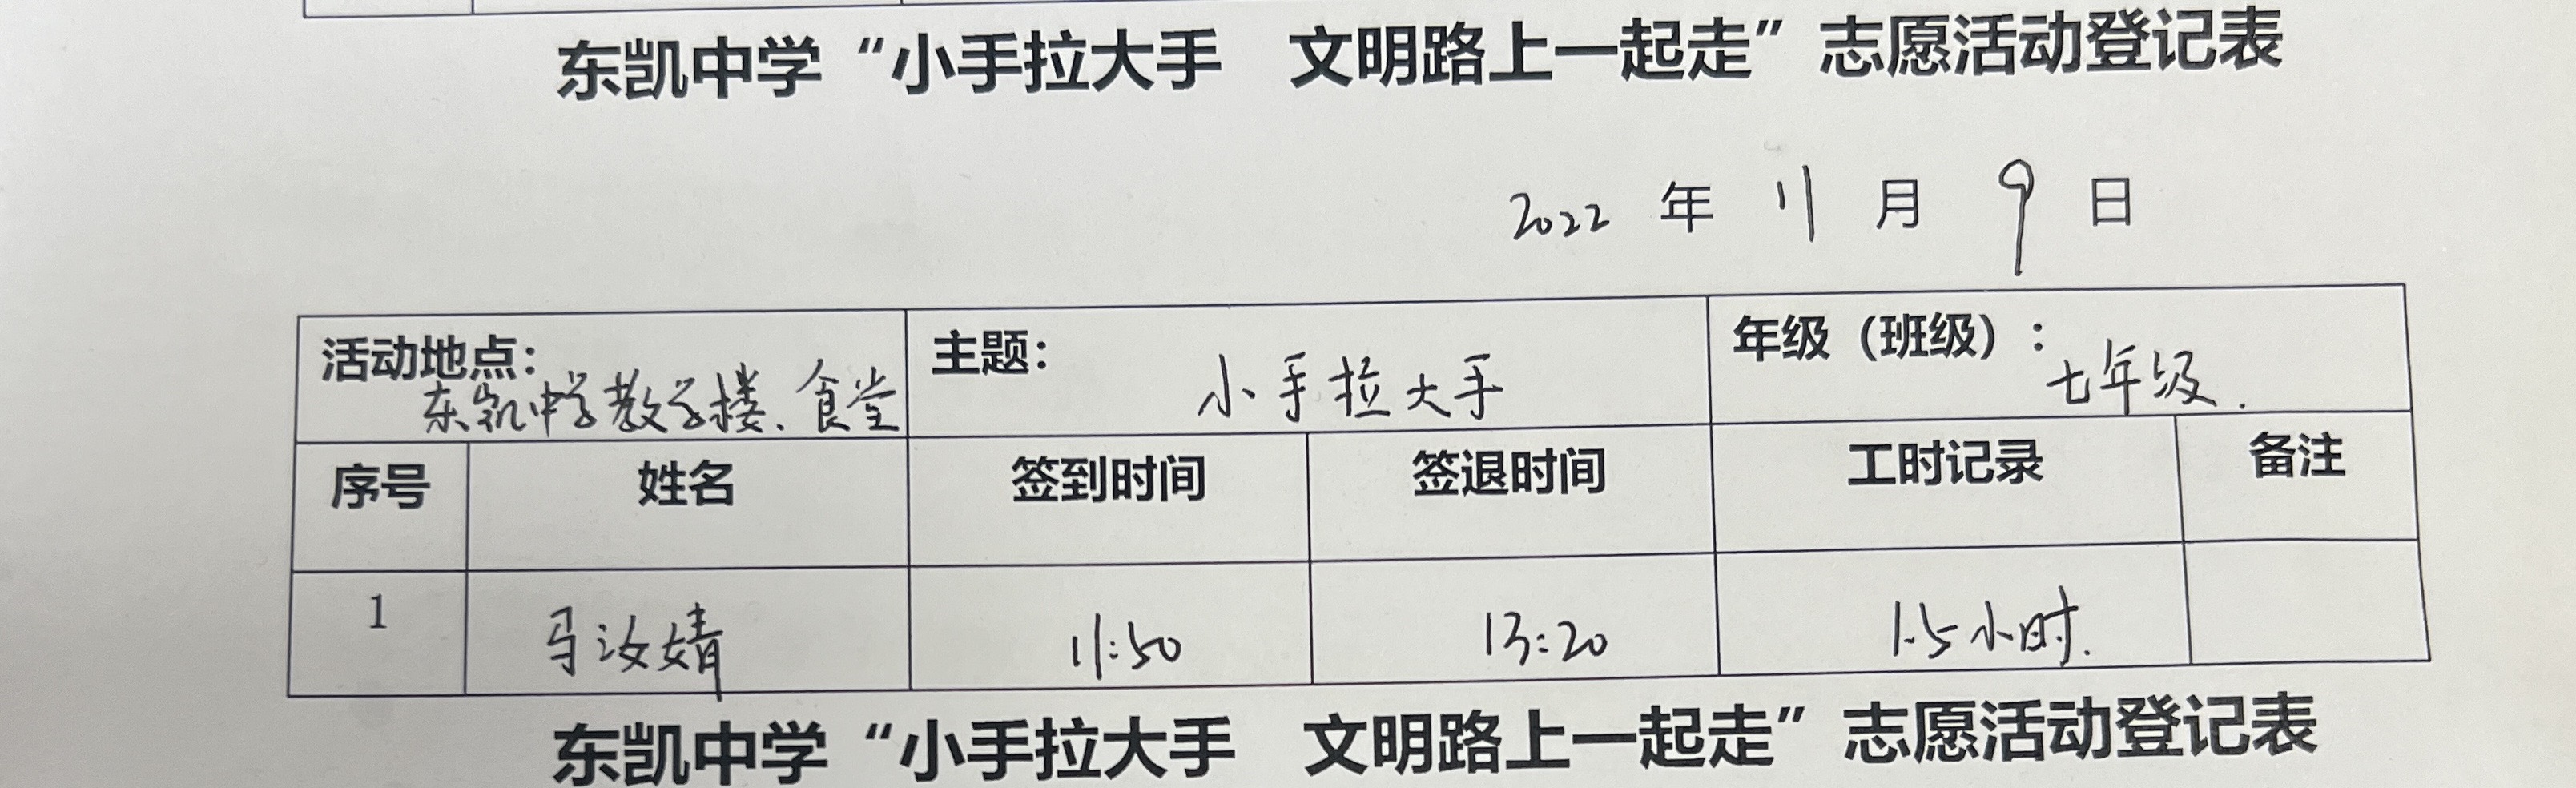 东凯中学“小手拉大手 文明路上一起走”志愿活动登记表
2022 年 11 月 9 日
活动地点： 东凯中学教学楼、食堂 主题： 小手拉大手 年级（班级）： 七年级.
序号 姓名 签到时间 签退时间 工时记录 备注
1 马汝婧 11:50 13:20 1.5小时.
东凯中学“小手拉大手 文明路上一起走”志愿活动登记表